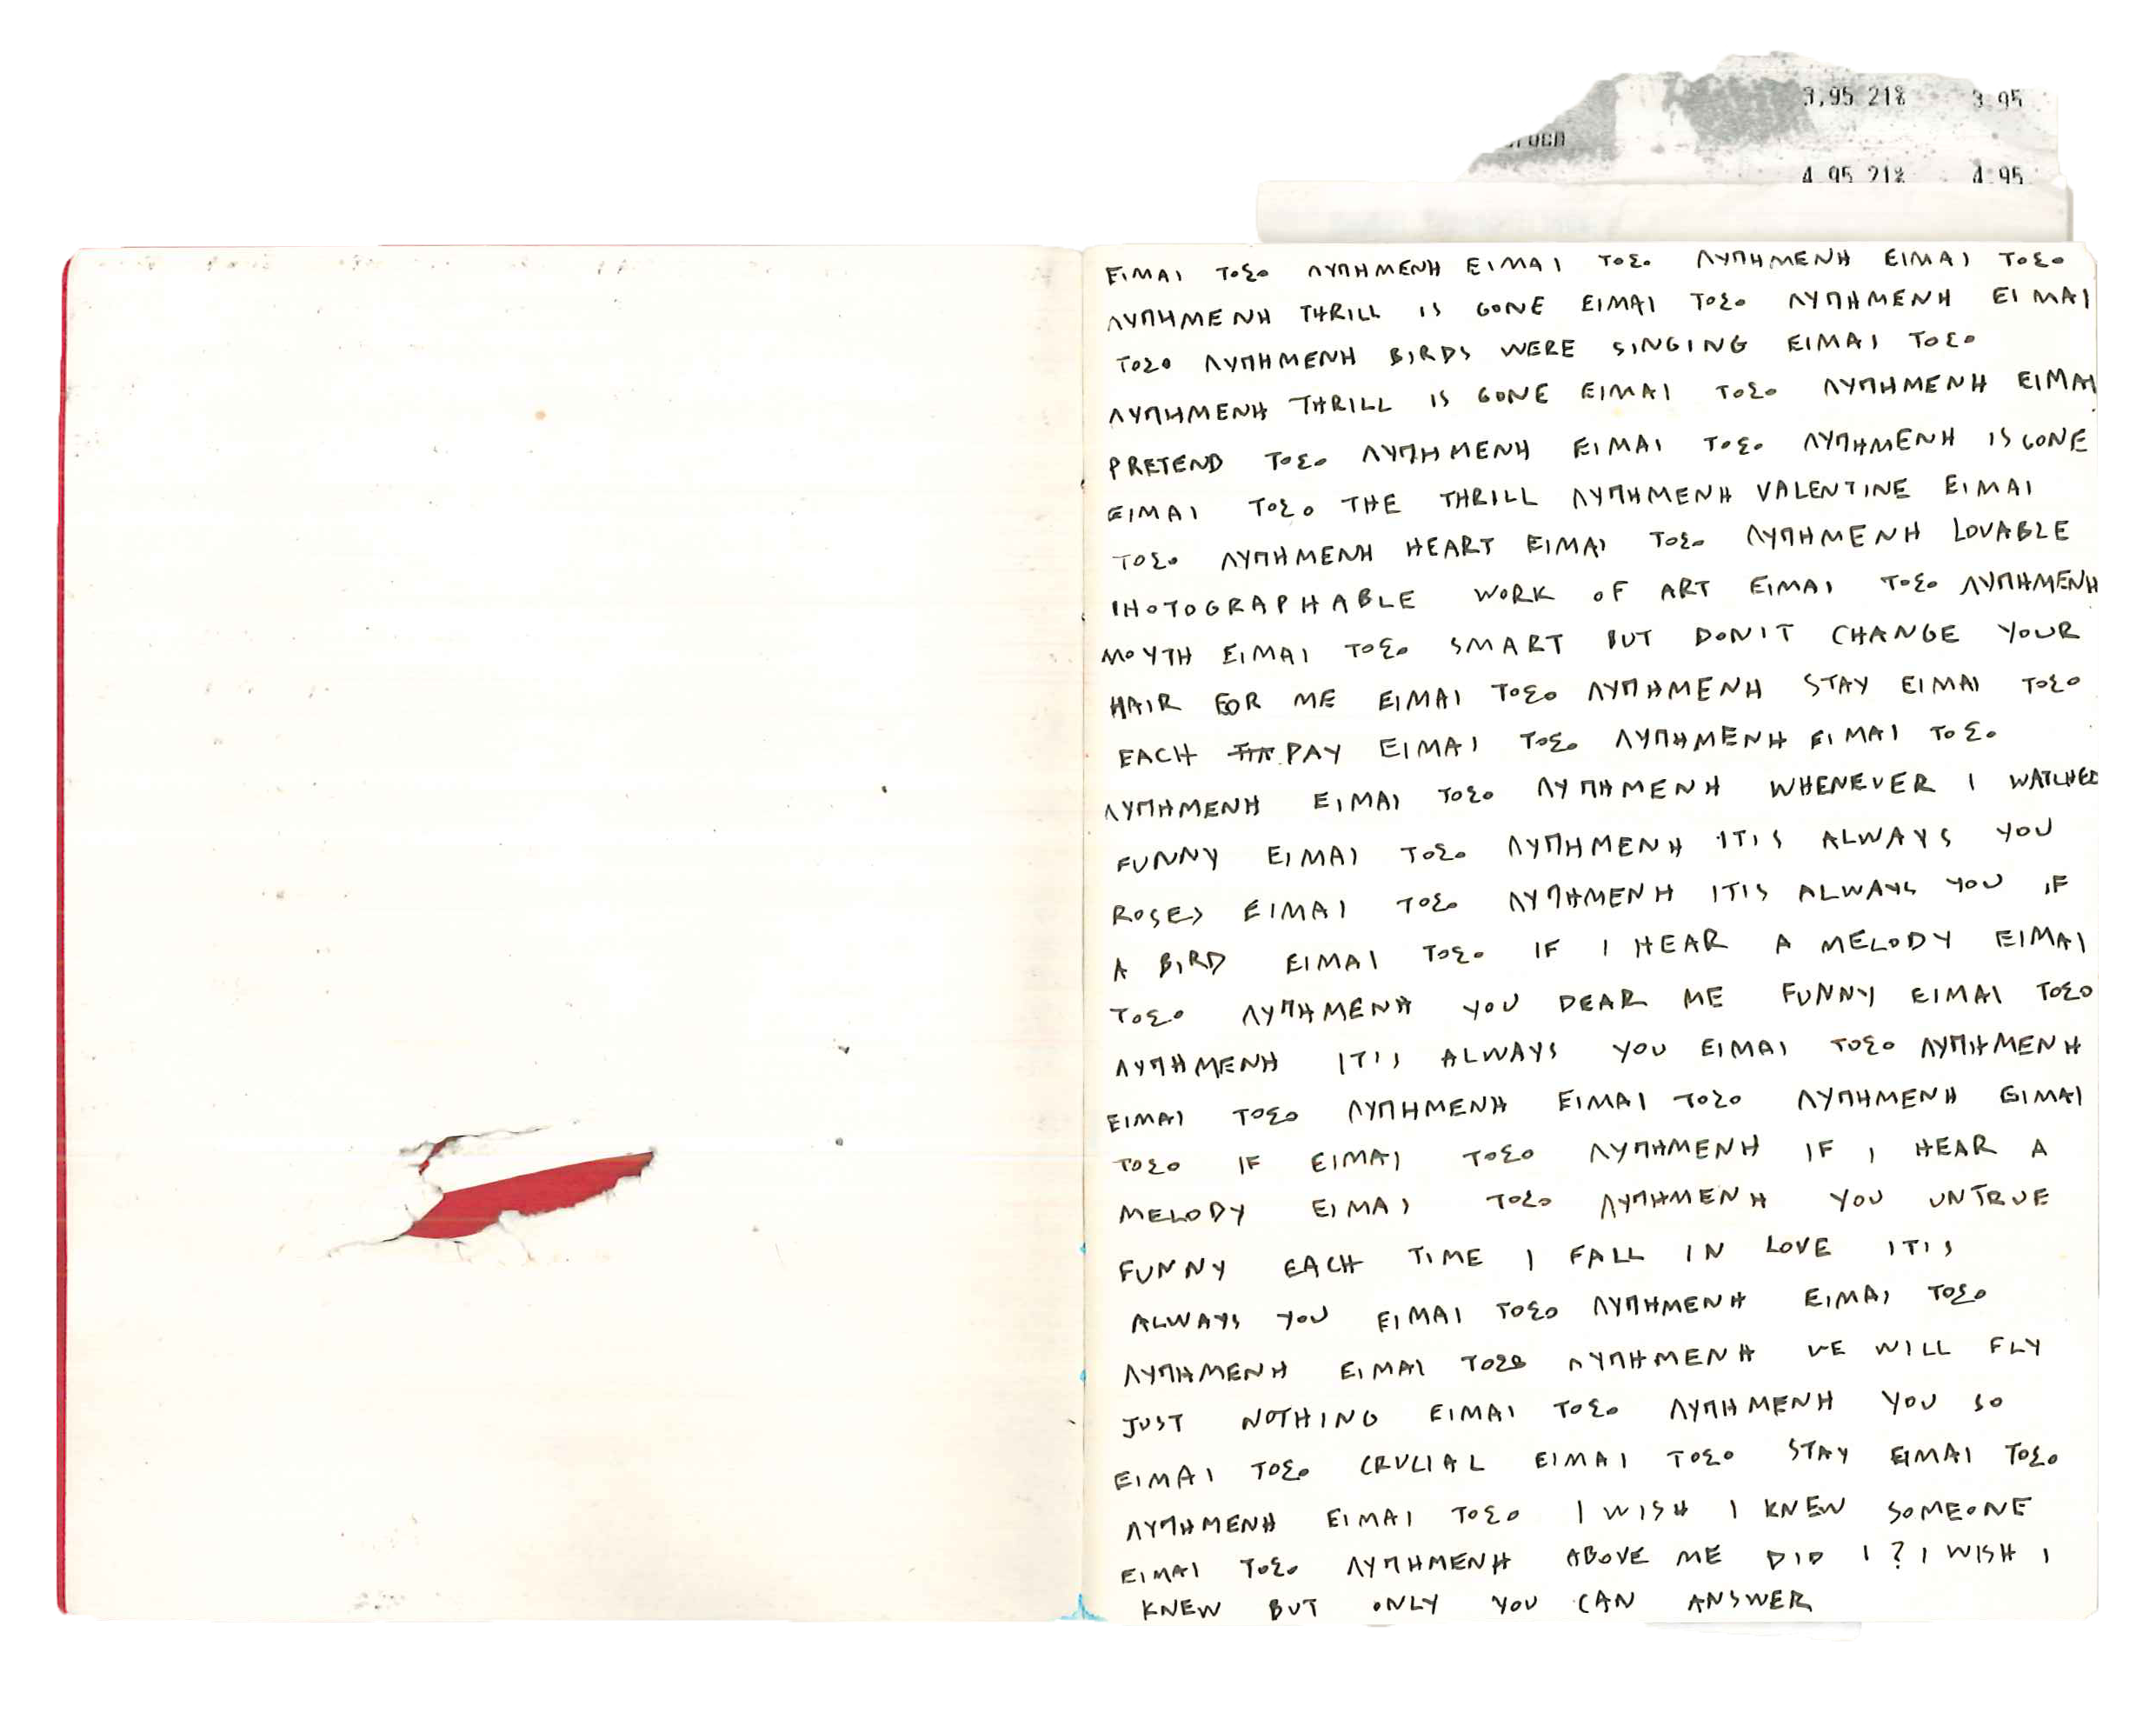 3,95 21% 3.95
4.95 21% 4.95
ΕΙΜΑΙ ΤΟΣΟ ΛΥΠΗΜΕΝΗ ΕΙΜΑΙ ΤΟΣΟ ΛΥΠΗΜΕΝΗ ΕΙΜΑΙ ΤΟΣΟ
ΛΥΠΗΜΕΝΗ THRILL IS GONE ΕΙΜΑΙ ΤΟΣΟ ΛΥΠΗΜΕΝΗ ΕΙΜΑΙ
ΤΟΣΟ ΛΥΠΗΜΕΝΗ BIRDS WERE SINGING ΕΙΜΑΙ ΤΟΣΟ
ΛΥΠΗΜΕΝΗ THRILL IS GONE ΕΙΜΑΙ ΤΟΣΟ ΛΥΠΗΜΕΝΗ ΕΙΜΑΙ
PRETEND ΤΟΣΟ ΛΥΠΗΜΕΝΗ ΕΙΜΑΙ ΤΟΣΟ ΛΥΠΗΜΕΝΗ IS GONE
ΕΙΜΑΙ ΤΟΣΟ THE THRILL ΛΥΠΗΜΕΝΗ VALENTINE ΕΙΜΑΙ
ΤΟΣΟ ΛΥΠΗΜΕΝΗ HEART ΕΙΜΑΙ ΤΟΣΟ ΛΥΠΗΜΕΝΗ LOVABLE
PHOTOGRAPHABLE WORK OF ART ΕΙΜΑΙ ΤΟΣΟ ΛΥΠΗΜΕΝΗ
MOYTH ΕΙΜΑΙ ΤΟΣΟ SMART BUT DON'T CHANGE YOUR
HAIR FOR ME ΕΙΜΑΙ ΤΟΣΟ ΛΥΠΗΜΕΝΗ STAY ΕΙΜΑΙ ΤΟΣΟ
EACH DAY ΕΙΜΑΙ ΤΟΣΟ ΛΥΠΗΜΕΝΗ ΕΙΜΑΙ ΤΟΣΟ
ΛΥΠΗΜΕΝΗ ΕΙΜΑΙ ΤΟΣΟ ΛΥΠΗΜΕΝΗ WHENEVER I WATCHED
FUNNY ΕΙΜΑΙ ΤΟΣΟ ΛΥΠΗΜΕΝΗ IT'S ALWAYS YOU
ROSES ΕΙΜΑΙ ΤΟΣΟ ΛΥΠΗΜΕΝΗ IT'S ALWAYS YOU IF
A BIRD ΕΙΜΑΙ ΤΟΣΟ IF I HEAR A MELODY ΕΙΜΑΙ
ΤΟΣΟ ΛΥΠΗΜΕΝΗ YOU DEAR ME FUNNY ΕΙΜΑΙ ΤΟΣΟ
ΛΥΠΗΜΕΝΗ IT'S ALWAYS YOU ΕΙΜΑΙ ΤΟΣΟ ΛΥΠΗΜΕΝΗ
ΕΙΜΑΙ ΤΟΣΟ ΛΥΠΗΜΕΝΗ ΕΙΜΑΙ ΤΟΣΟ ΛΥΠΗΜΕΝΗ ΕΙΜΑΙ
ΤΟΣΟ IF ΕΙΜΑΙ ΤΟΣΟ ΛΥΠΗΜΕΝΗ IF I HEAR A
MELODY ΕΙΜΑΙ ΤΟΣΟ ΛΥΠΗΜΕΝΗ YOU UNTRUE
FUNNY EACH TIME I FALL IN LOVE IT'S
ALWAYS YOU ΕΙΜΑΙ ΤΟΣΟ ΛΥΠΗΜΕΝΗ ΕΙΜΑΙ ΤΟΣΟ
ΛΥΠΗΜΕΝΗ ΕΙΜΑΙ ΤΟΣΟ ΛΥΠΗΜΕΝΗ WE WILL FLY
JUST NOTHING ΕΙΜΑΙ ΤΟΣΟ ΛΥΠΗΜΕΝΗ YOU SO
ΕΙΜΑΙ ΤΟΣΟ CRUCIAL ΕΙΜΑΙ ΤΟΣΟ STAY ΕΙΜΑΙ ΤΟΣΟ
ΛΥΠΗΜΕΝΗ ΕΙΜΑΙ ΤΟΣΟ I WISH I KNEW SOMEONE
ΕΙΜΑΙ ΤΟΣΟ ΛΥΠΗΜΕΝΗ ABOVE ME DID I? I WISH I
KNEW BUT ONLY YOU CAN ANSWER